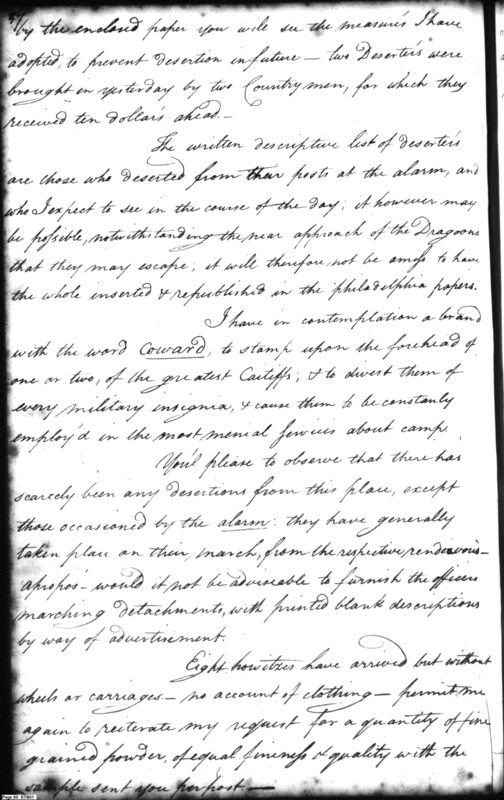 By the enclosed paper you will see the measures I have
adopted, to prevent desertion in future — two Deserters were
brought in yesterday by two Countrymen, for which they
received ten dollars ahead. —
The written descriptive list of deserters
are those who deserted from their posts at the alarm, and
who I expect to see in the course of the day; it however may
be possible, notwithstanding the near approach of the Dragoons
that they may escape; it will therefore not be amiss to have
the whole inserted & republished in the philadelphia papers.
I have in contemplation a brand
with the word Coward, to stamp upon the forehead of
one or two, of the greatest Caitiffs, & to divest them of
every military insignia, & cause them to be constantly
employ'd in the most menial services about camp
You'l please to observe that there has
scarcely been any desertions from this place, except
those occasioned by the alarm: they have generally
taken place on their march, from the respective rendezvous—
apropos — would it not be adviseable to furnish the officers
marching detachments, with printed blank descriptions
by way of advertisement.
Eight howitzers have arrived but without
wheels or carriages — no account of clothing — permit me
again to reiterate my request for a quantity of fine
grained powder, of equal fineness & quality with the
sample sent you per post —